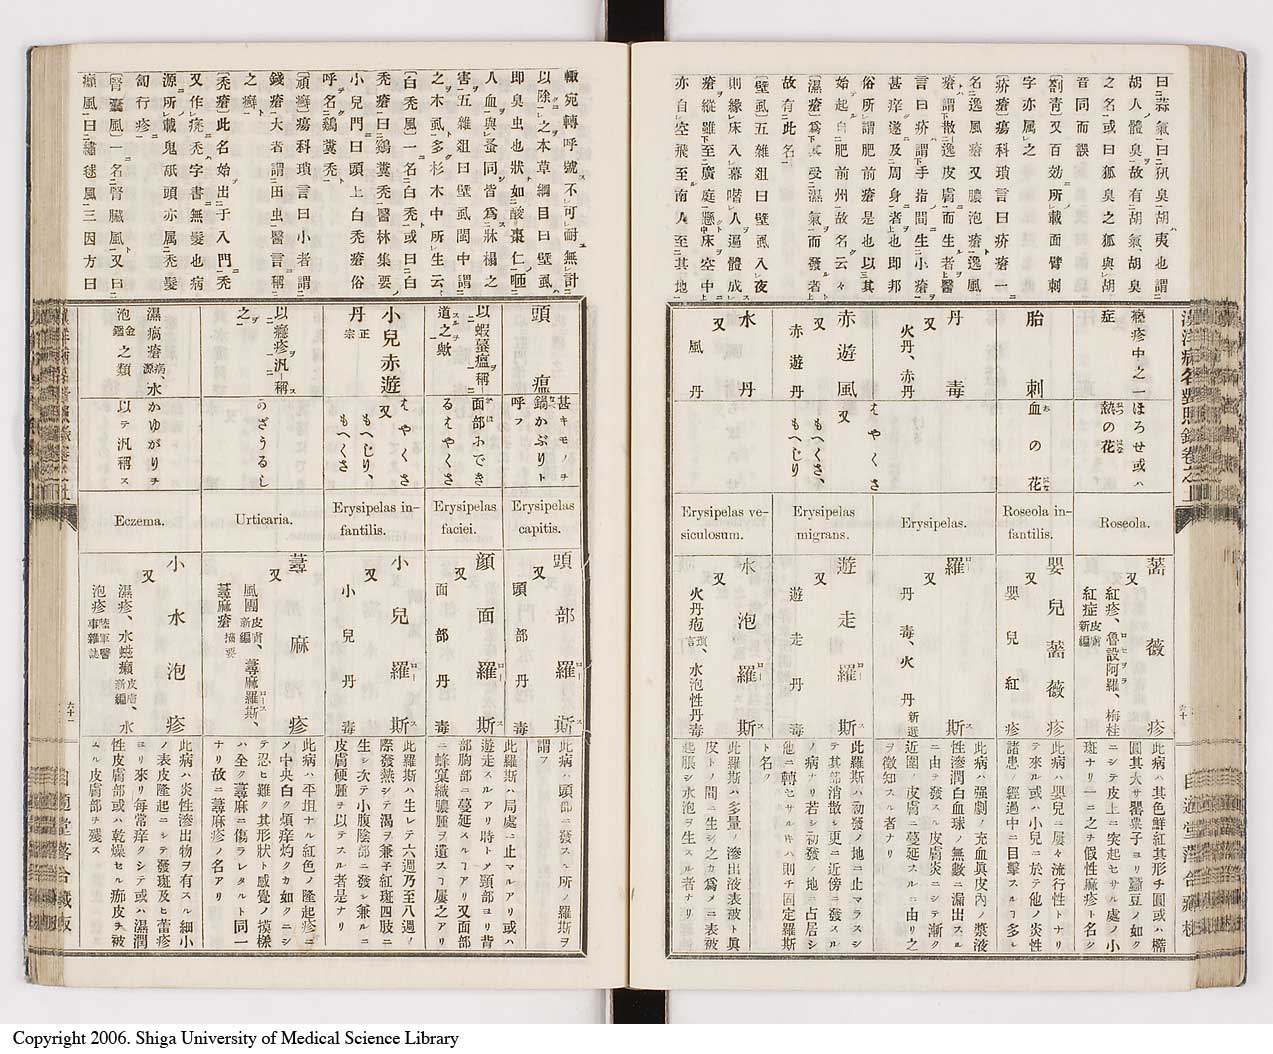 漢洋病名對照錄卷之上
曰蒸氣曰汎臭胡夷也謂
胡人體臭故有胡氣胡臭
之名或曰狐臭之狐與胡
音同而誤
〔劄青〕又百効所載面臂刺
字亦属之
〔疥瘡〕瘍科瑣言曰疥瘡一
名逸風瘡又膿泡瘡逸風
瘡謂散逸皮膚而生者醫
言曰疥謂手指間生小瘡
甚痒遂及周身者也即邦
俗所謂肥前瘡是也以其
始起自肥前州故名云々
〔濕瘡〕爲其受濕氣而發者
故有此名
〔壁虱〕五雜俎曰壁虱入夜
則緣床入幕噆人遍體成
瘡縱雖至廣庭懸床空中
亦自空飛至南人至其地
癮疹中之一
症
ほろせ或ハ
熱の花
Roseola.
薔薇疹
又
紅疹、魯設阿羅、梅桂
紅症皮膚新編
此病ハ其色鮮紅其形チ圓或ハ橢
圓其大サ罌粟子ヨリ蠶豆ノ如ク
ニシテ皮上ニ突起セサル處ノ小
斑ナリ一ニ之チ假性麻疹ト名ク
胎刺
血の花
Roseola in-
fantilis.
嬰兒薔薇疹
又
嬰兒紅疹
此病ハ嬰兒ニ屢々流行性トナリ
テ來ル或ハ小兒ニ於テ他ノ炎性
諸患ノ經過中ニ目擊スルコ多し
丹毒
又
火丹、赤丹
Erysipelas.
羅斯
又
丹毒、火丹新選
此病ハ强劇ノ充血眞皮內ノ漿液
性滲潤白血球ノ無數ニ漏出スル
ニ由テ發スル皮膚炎ニシテ漸ク
近圍ノ皮膚ニ蔓延スルニ由リ之
ヲ徵知スル者ナリ
赤遊風
又
赤遊丹
はやくさ
又
もへくさ、
もへじり
Erysipelas
migrans.
遊走羅斯
又
遊走丹毒
此羅斯ハ初發ノ地ニ止マラスシ
テ其部消散し更ニ近傍ニ發スル
ノ病ナリ若シ初發ノ地ニ占居シ
他ニ轉セサルキハ則チ固定羅斯
ト名ク
水丹
又
風丹
Erysipelas ve-
siculosum.
水泡羅斯
又
火丹疱瑣言、水泡性丹毒
此羅斯ハ多量ノ滲出液表被ト眞
皮トノ間ニ生シ之カ爲メニ表被
起脹シ水泡ヲ生スル者ナリ
自適堂落合藏板
輒宛轉呼號不可耐無計
以除之本草綱目曰壁虱
即臭虫也狀如酸棗仁咂
人血與蚤同皆爲牀榻之
害五雜俎曰壁虱閩中謂
之木虱多杉木中所生云
〔白禿風〕一名白禿或曰白
禿瘡曰鷄糞禿醫林集要
小兒門曰頭上白禿瘡俗
呼名鷄糞禿
〔頑癬〕瘍科瑣言曰小者謂
錢瘡大者謂田虫醫言稱
之癬
〔禿瘡〕此名始出于入門禿
又作𤻞禿字書無髮也病
源所載鬼舐頭亦属禿髮
匐行疹
〔腎囊風〕一名腎臟風又曰
癩風曰繡毬風三因方曰
頭瘟
甚キモノチ
鍋かぶりト
呼フ
Erysipelas
capitis.
頭部羅斯
又
頭部丹毒
此病ハ頭部ニ發スル所ノ羅斯ヲ
謂フ
以蝦蟇瘟稱
道之歟
面部おでき
るはやくさ
Erysipelas
faciei.
顔面羅斯
又
面部丹毒
此羅斯ハ局處ニ止マルアリ或ハ
遊走スルアリ時トメ頸部ヨリ背
部胸部ニ蔓延スルコアリ又面部
ニ蜂窠織膿腫ヲ遺スコ屢之アリ
小兒赤遊
丹正宗
はやくさ
又
もへじり、
もへくさ
Erysipelas in-
fantilis.
小兒羅斯
又
小兒丹毒
此羅斯ハ生レテ六週乃至八週ノ
際發熱シテ渴ヲ兼子紅斑四肢ニ
生シ次テ小腹陰部ニ發し兼ルニ
皮膚硬腫チ以テスル者是ナリ
以癮疹汎稱
之
かざうるし
Urticaria.
蕁麻疹
又
風團皮膚新編、蕁麻羅斯、
蕁麻瘡摘要
此病ハ平坦ナル紅色ノ隆起疹ニ
メ中央白ク煩痒灼クカ如クニシ
テ忍ヒ難ク其形狀ノ感覺ノ摸樣
ハ全ク蕁麻ニ傷ラレタルト同一
ナリ故ニ蕁麻疹ノ名アリ
濕瘑瘡病源、水
泡金鑑之類
かゆがりチ
以テ汎稱ス
Eczema.
小水泡疹
又
濕疹、水蛭癩皮膚新編、水
泡疹陸軍醫事雜誌
此病ハ炎性滲出物ヲ有スル細小
ノ表皮隆起ニシテ發斑及ヒ蕾疹
ヨリ來リ每常痒クシテ或ハ濕潤
性皮膚部或ハ乾燥セル痂皮チ被
ムル皮膚部チ殘ス
六十一
自適堂落合藏板
Copyright 2006. Shiga University of Medical Science Library